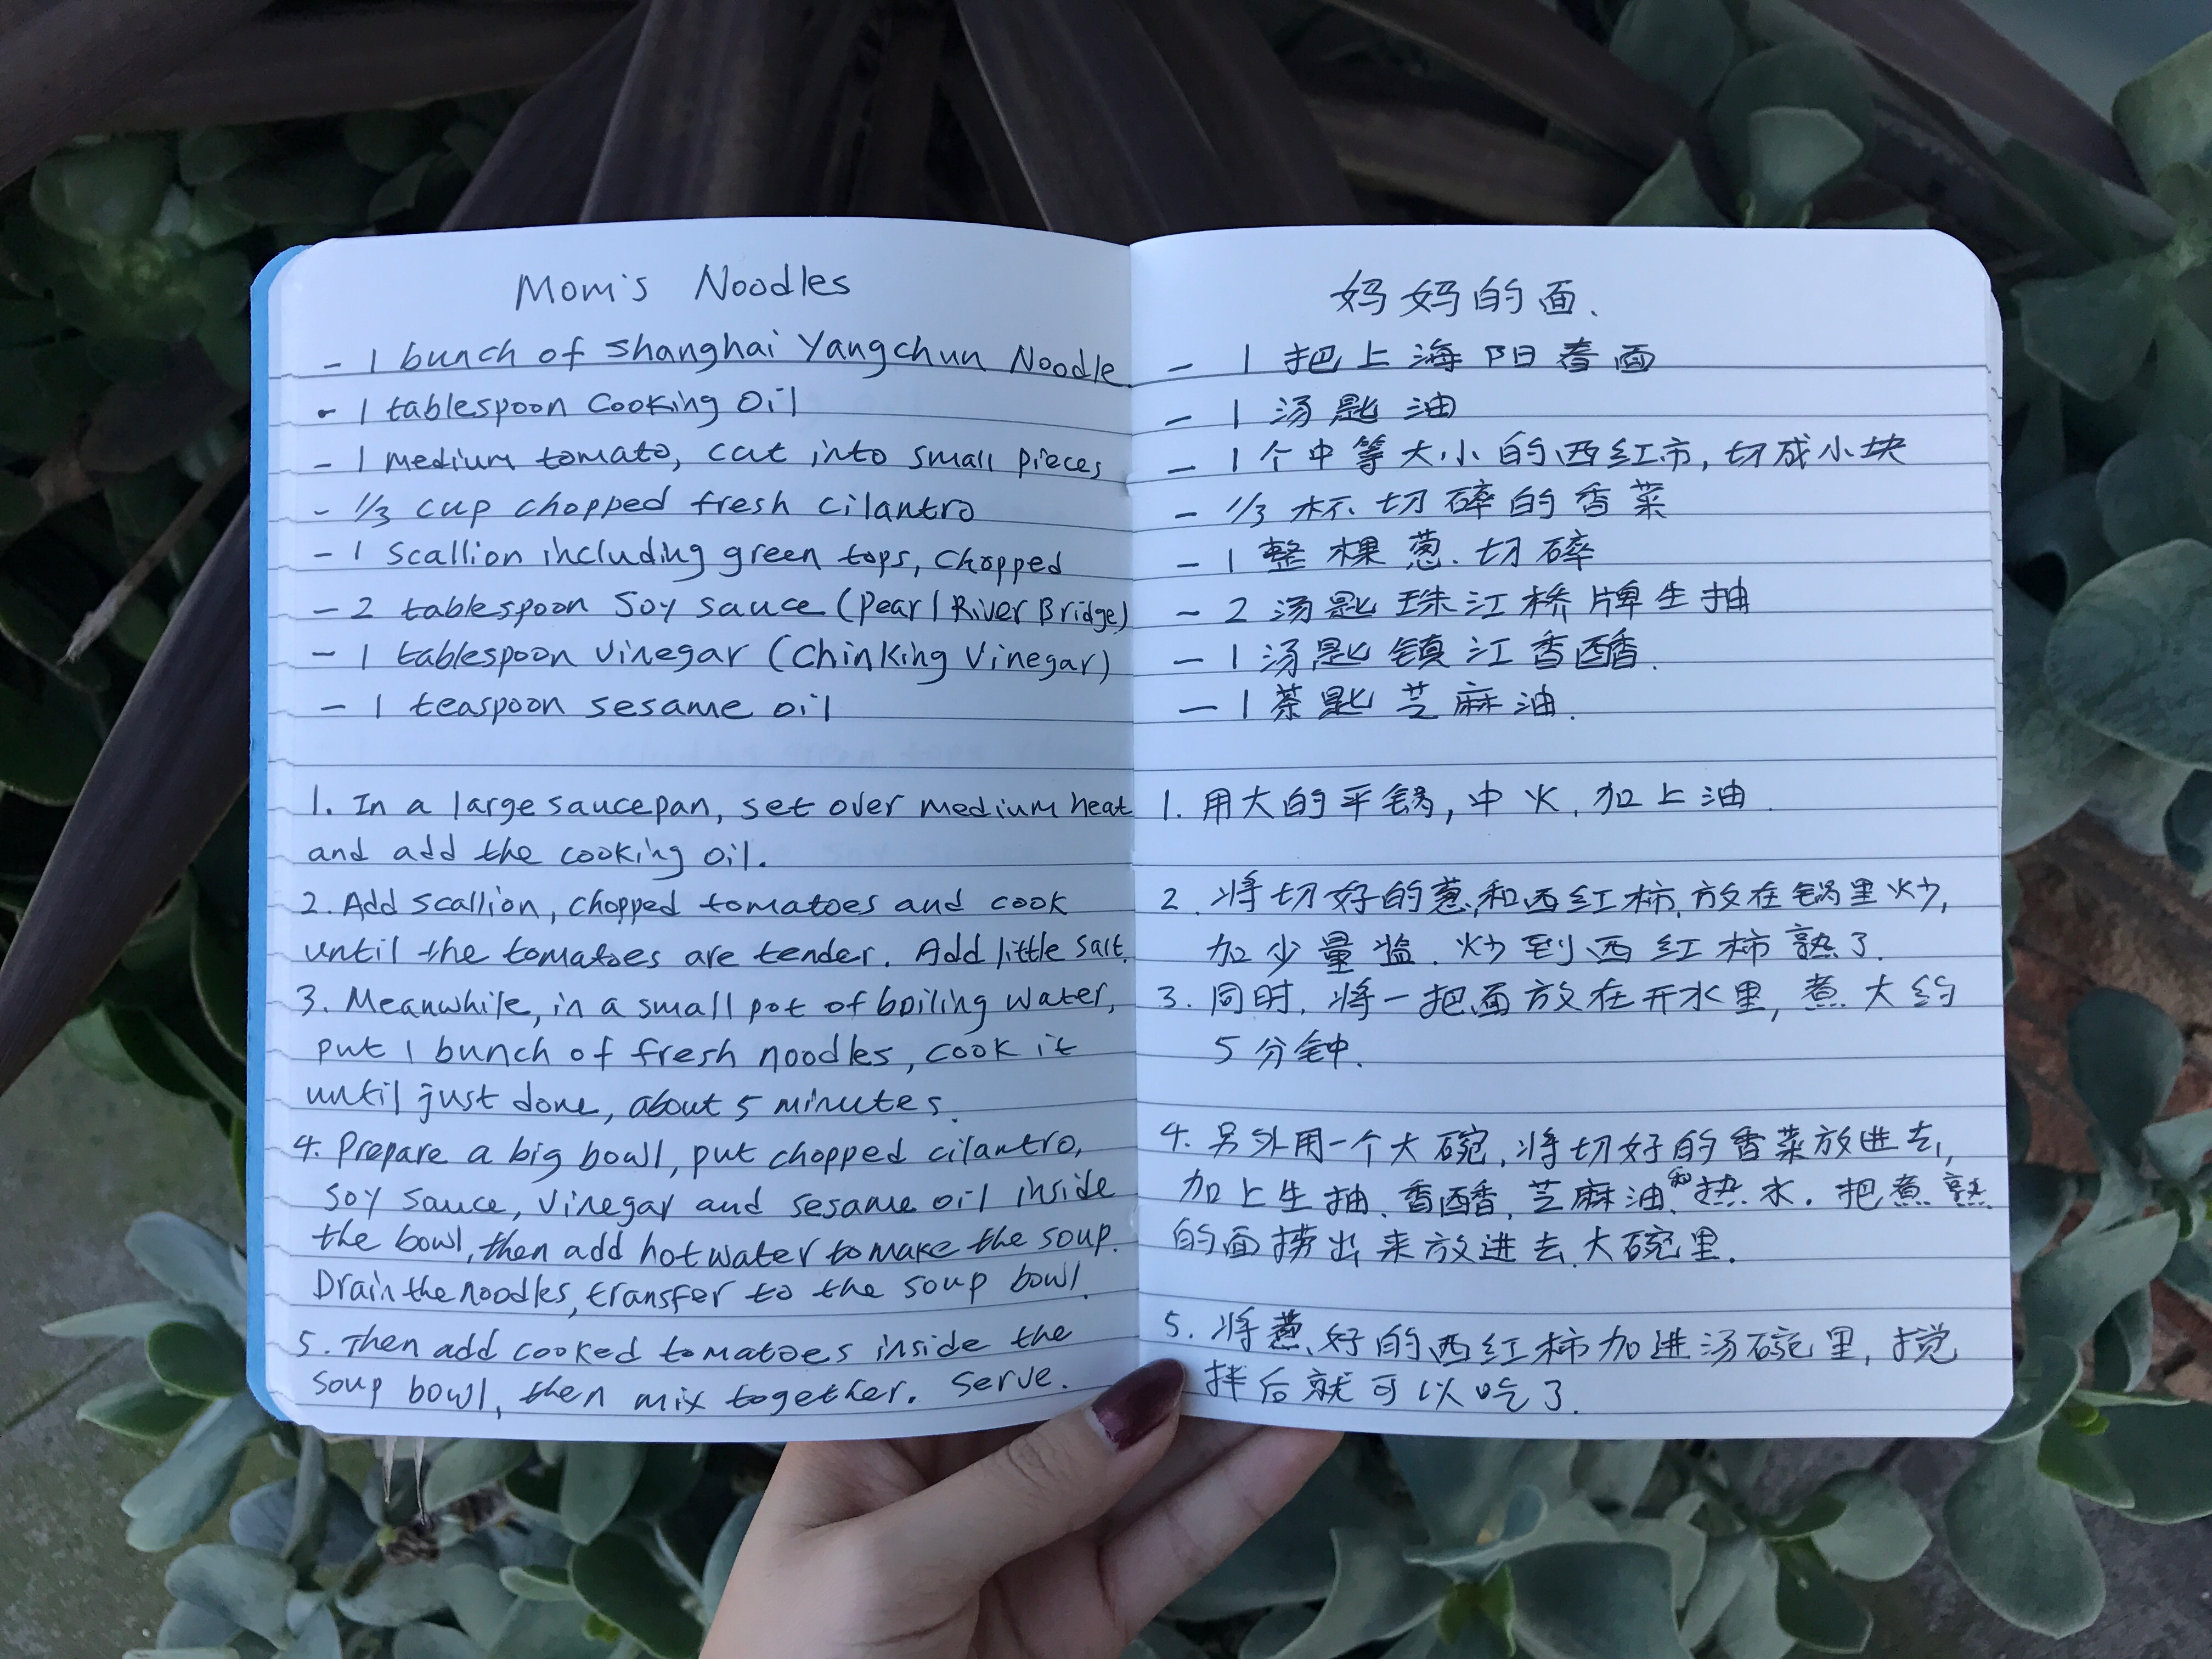 Mom's Noodles
- 1 bunch of Shanghai Yangchun Noodle
- 1 tablespoon Cooking Oil
- 1 medium tomato, cut into small pieces
- 1/3 cup chopped fresh cilantro
- 1 scallion including green tops, chopped
- 2 tablespoon soy sauce (Pearl River Bridge)
- 1 tablespoon vinegar (Chinking Vinegar)
- 1 teaspoon sesame oil
1. In a large saucepan, set over medium heat
and add the cooking oil.
2. Add scallion, chopped tomatoes and cook
until the tomatoes are tender. Add little salt.
3. Meanwhile, in a small pot of boiling water,
put 1 bunch of fresh noodles, cook it
until just done, about 5 minutes.
4. Prepare a big bowl, put chopped cilantro,
soy sauce, vinegar and sesame oil inside
the bowl, then add hot water to make the soup.
Drain the noodles, transfer to the soup bowl.
5. Then add cooked tomatoes inside the
soup bowl, then mix together. Serve.
妈妈的面.
- 1 把上海阳春面
- 1 汤匙油
- 1 个中等大小的西红市, 切成小块
- 1/3 杯切碎的香菜
- 1 整棵葱. 切碎
- 2 汤匙珠江桥牌生抽
- 1 汤匙镇江香醋.
- 1 茶匙芝麻油.
1. 用大的平锅, 中火, 加上油.
2. 将切好的葱,和西红柿,放在锅里炒,
加少量盐. 炒到西红柿熟了.
3. 同时, 将一把面放在开水里, 煮大约
5分钟.
4. 另外用一个大碗, 将切好的香菜放进去,
加上生抽, 香醋, 芝麻油,和热水. 把煮熟
的面捞出来放进去大碗里.
5. 将葱好的西红柿加进汤碗里, 搅
拌后就可以吃了.